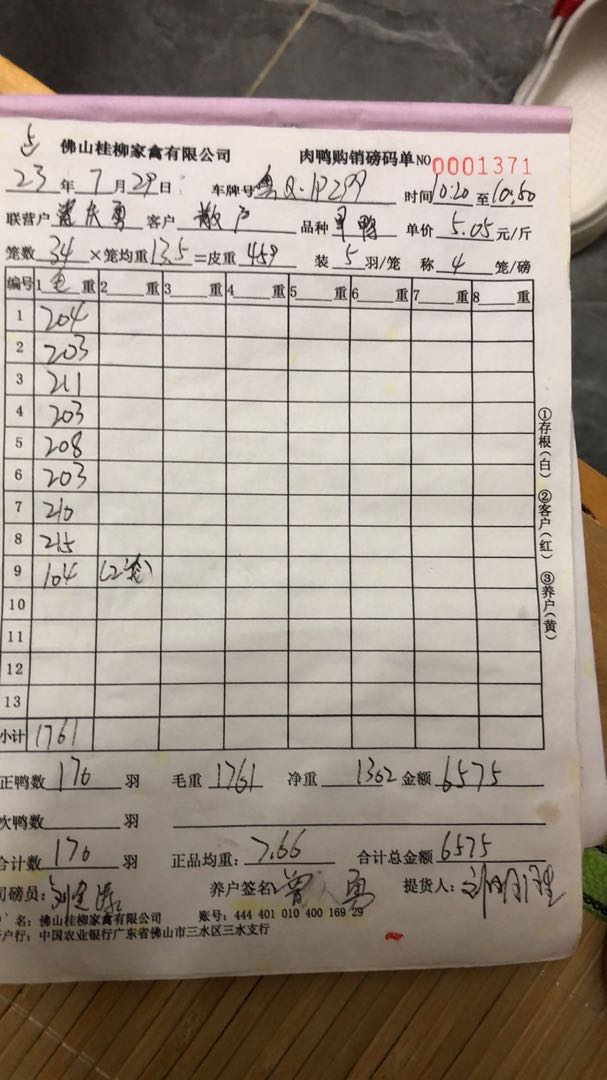 佛山桂柳家禽有限公司 肉鸭购销磅码单 NO 0001371
23年7月29日 车牌号 粤Q·1P299 时间10:20至10:50
联营户 勇 客户 散户 品种 鸭 单价 5.05元/斤
笼数 34 ×笼均重13.5=皮重 459 装 5 羽/笼 称 4 笼/磅
编号 1 毛 重 2 重 3 重 4 重 5 重 6 重 7 重 8 重
1 204
2 203
3 211
4 203
5 208
6 203
7 210
8 215
9 104 (2笼)
10
11
12
13
小计 1761
正鸭数 170 羽 毛重 1761 净重 1302 金额 6575
次鸭数 羽
合计数 170 羽 正品均重: 7.66 合计总金额 6575
司磅员: 养户签名: 勇 提货人: 刘明
户 名: 佛山桂柳家禽有限公司 账号: 444 401 010 400 169 29
开户行: 中国农业银行广东省佛山市三水区三水支行
①存根(白) ②客户(红) ③养户(黄)